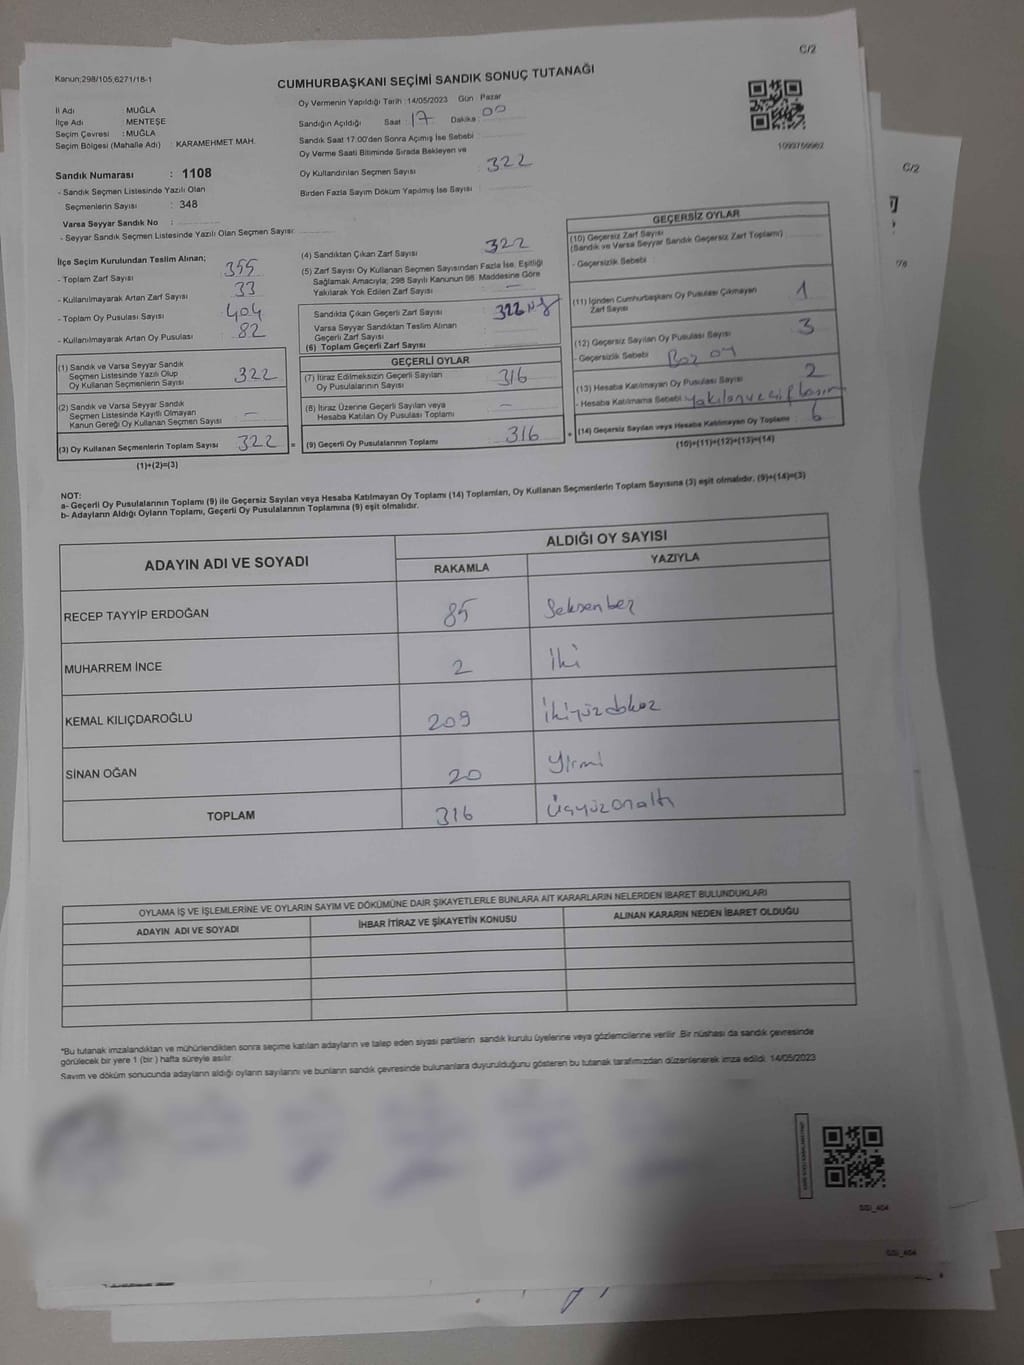 C/2
Kanun;298/105,6271/18-1
CUMHURBAŞKANI SEÇİMİ SANDIK SONUÇ TUTANAĞI
İl Adı : MUĞLA
İlçe Adı : MENTEŞE
Seçim Çevresi : MUĞLA
Seçim Bölgesi (Mahalle Adı) : KARAMEHMET MAH.
Oy Vermenin Yapıldığı Tarih :14/05/2023 Gün : Pazar
Sandığın Açıldığı Saat 17 Dakika 00
Sandık Saat 17.00'den Sonra Açımış İse Sebebi
Oy Verme Saati Bitiminde Sırada Bekleyen ve
Oy Kullandırılan Seçmen Sayısı : 322
Birden Fazla Sayım Döküm Yapılmış İse Sayısı :
1099769962
Sandık Numarası : 1108
- Sandık Seçmen Listesinde Yazılı Olan
Seçmenlerin Sayısı : 348
Varsa Seyyar Sandık No :
- Seyyar Sandık Seçmen Listesinde Yazılı Olan Seçmen Sayısı:
İlçe Seçim Kurulundan Teslim Alınan;
- Toplam Zarf Sayısı : 355
- Kullanılmayarak Artan Zarf Sayısı : 33
- Toplam Oy Pusulası Sayısı : 404
- Kullanılmayarak Artan Oy Pusulası : 82
(1) Sandık ve Varsa Seyyar Sandık
Seçmen Listesinde Yazılı Olup
Oy Kullanan Seçmenlerin Sayısı : 322
(2) Sandık ve Varsa Seyyar Sandık
Seçmen Listesinde Kayıtlı Olmayan
Kanun Gereği Oy Kullanan Seçmen Sayısı : —
(3) Oy Kullanan Seçmenlerin Toplam Sayısı : 322
(1)+(2)=(3)
(4) Sandıktan Çıkan Zarf Sayısı : 322
(5) Zarf Sayısı Oy Kullanan Seçmen Sayısından Fazla İse, Eşitliği
Sağlamak Amacıyla; 298 Sayılı Kanunun 98. Maddesine Göre
Yakılarak Yok Edilen Zarf Sayısı : —
Sandıkta Çıkan Geçerli Zarf Sayısı : 322
Varsa Seyyar Sandıktan Teslim Alınan
Geçerli Zarf Sayısı :
(6) Toplam Geçerli Zarf Sayısı :
GEÇERLİ OYLAR
(7) İtiraz Edilmeksizin Geçerli Sayılan
Oy Pusulalarının Sayısı : 316
(8) İtiraz Üzerine Geçerli Sayılan veya
Hesaba Katılan Oy Pusulası Toplamı : —
= (9) Geçerli Oy Pusulalarının Toplamı : 316
GEÇERSİZ OYLAR
(10) Geçersiz Zarf Sayısı
(Sandık ve Varsa Seyyar Sandık Geçersiz Zarf Toplamı) :
- Geçersizlik Sebebi :
(11) İçinden Cumhurbaşkanı Oy Pusulası Çıkmayan
Zarf Sayısı : 1
(12) Geçersiz Sayılan Oy Pusulası Sayısı : 3
- Geçersizlik Sebebi : Boz oy
(13) Hesaba Katılmayan Oy Pusulası Sayısı : 2
- Hesaba Katılmama Sebebi : yakılan ve
+ (14) Geçersiz Sayılan veya Hesaba Katılmayan Oy Toplamı : 6
(10)+(11)+(12)+(13)=(14)
NOT:
a- Geçerli Oy Pusulalarının Toplamı (9) ile Geçersiz Sayılan veya Hesaba Katılmayan Oy Toplamı (14) Toplamları, Oy Kullanan Seçmenlerin Toplam Sayısına (3) eşit olmalıdır. (9)+(14)=(3)
b- Adayların Aldığı Oyların Toplamı, Geçerli Oy Pusulalarının Toplamına (9) eşit olmalıdır.
ADAYIN ADI VE SOYADI
ALDIĞI OY SAYISI
RAKAMLA YAZIYLA
RECEP TAYYİP ERDOĞAN 85 Seksenbeş
MUHARREM İNCE 2 İki
KEMAL KILIÇDAROĞLU 209 İkiyüzdokuz
SİNAN OĞAN 20 Yirmi
TOPLAM 316 Üçyüzonaltı
OYLAMA İŞ VE İŞLEMLERİNE VE OYLARIN SAYIM VE DÖKÜMÜNE DAİR ŞİKAYETLERLE BUNLARA AİT KARARLARIN NELERDEN İBARET BULUNDUKLARI
ADAYIN ADI VE SOYADI İHBAR İTİRAZ VE ŞİKAYETİN KONUSU ALINAN KARARIN NEDEN İBARET OLDUĞU
*Bu tutanak imzalandıktan ve mühürlendikten sonra seçime katılan adayların ve talep eden siyasi partilerin sandık kurulu üyelerine veya gözlemcilerine verilir. Bir nüshası da sandık çevresinde
görülecek bir yere 1 (bir ) hafta süreyle asılır.
Sayım ve döküm sonucunda adayların aldığı oyların sayılarını ve bunların sandık çevresinde bulunanlara duyurulduğunu gösteren bu tutanak tarafımızdan düzenlenerek imza edildi. 14/05/2023
SSI_404
SSI_404
C/2